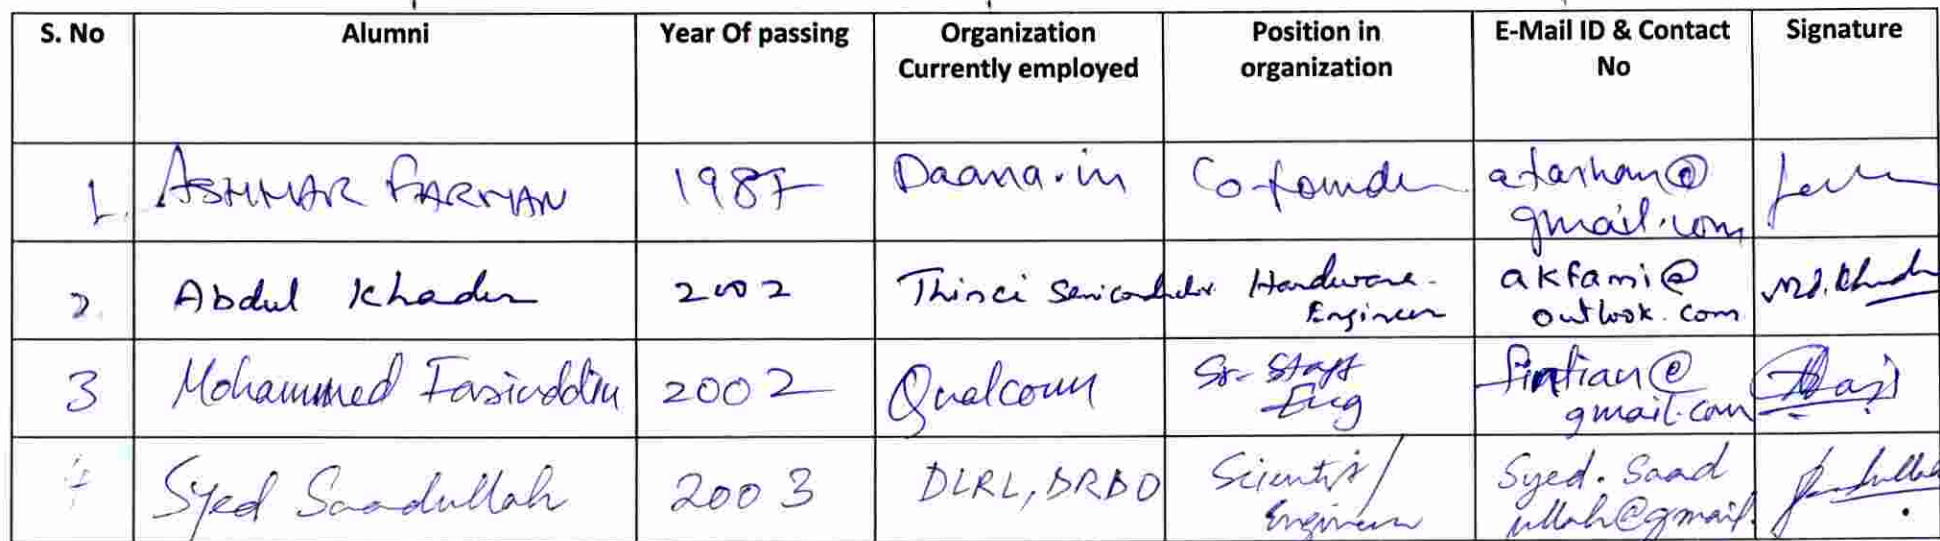 S. No Alumni Year Of passing Organization Currently employed Position in organization E-Mail ID & Contact No Signature
1. ASHHAR FARHAN 1987 Daana.in Co-founder afarhan@gmail.com
2. Abdul Khader 2002 Thinci Semiconductor Hardware Engineer akfami@outlook.com Md. Khader
3 Mohammed Fasiuddin 2002 Qualcomm Sr. Staff Eng gmail.com
4 Syed Saadullah 2003 DLRL, DRDO Scientist/Engineer Syed.Saadullah@gmail.